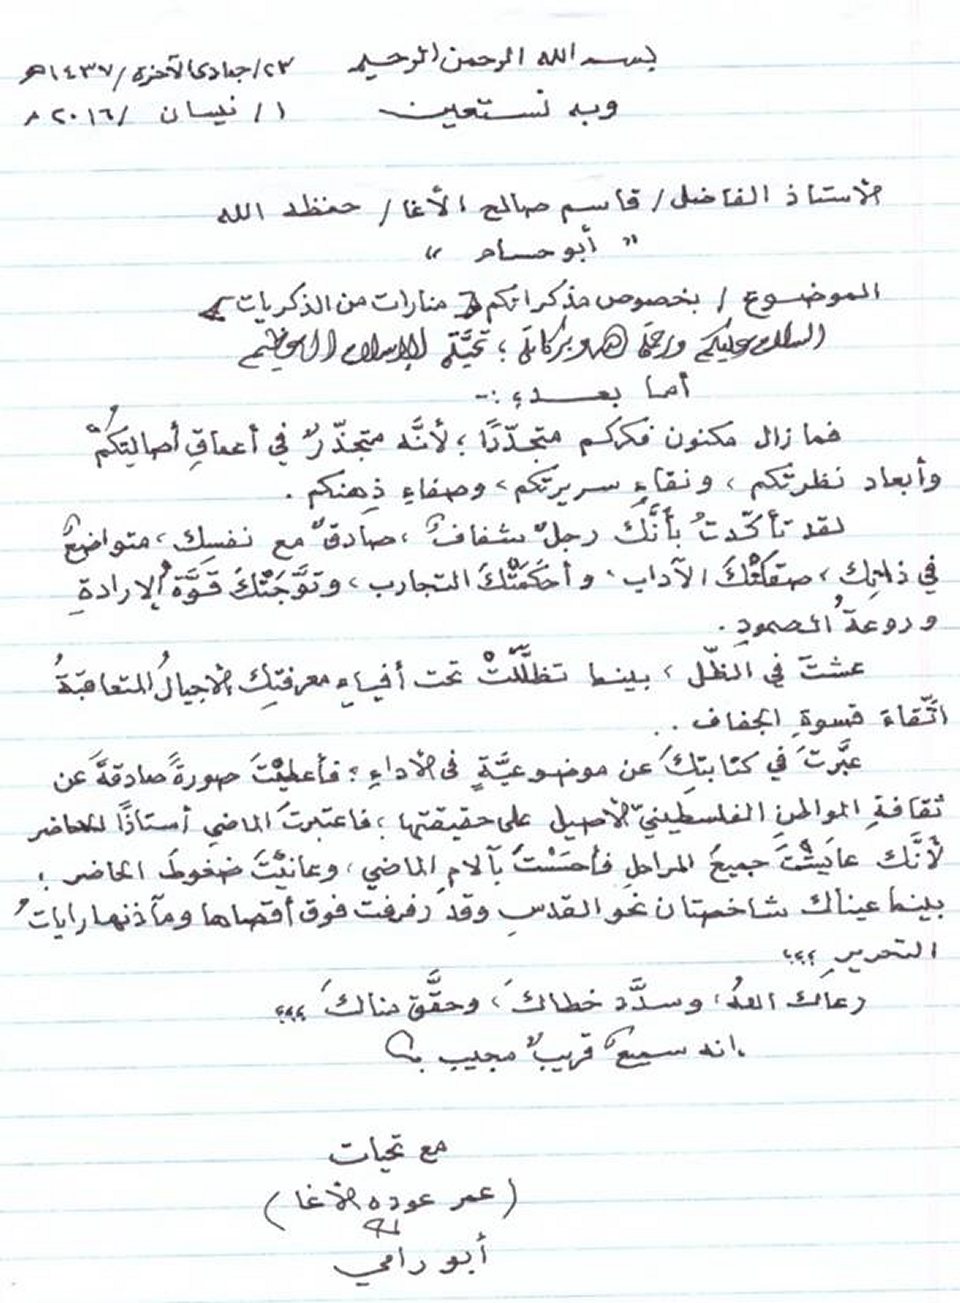 بسم الله الرحمن الرحيم ٢٣/جمادى الآخرة/١٤٣٧هـ
وبه نستعين ١/ نيسان /٢٠١٦م
الأستاذ الفاضل/ قاسم صالح الأغا/ حفظه الله
" أبو حسام "
الموضوع / بخصوص مذكراتكم } منارات من الذكريات {
السلام عليكم ورحمة الله وبركاته ؛ تحيَّة الإسلام العظيم
أما بعد :-
فما زال مكنون فكركم متجدّدًا ؛ لأنَّه متجذّرٌ في أعماقِ أصالتِكُمْ
وأبعاد نظرتكم ، ونقاءِ سريرتكم ، وصفاءِ ذِهنِكم .
لقد تأكّدتُ بأنَّكَ رجلٌ شفافٌ ، صادقٌ مع نفسِك ، متواضعٌ
في ذاتِك ، صقلَتْكَ الآداب ، وأحكَمَتْكَ التجارب ، وتوَّجَتْكَ قوَّةُ الإرادةِ
وروعةُ الصمودِ .
عشتَ في الظّلِ ، بينما تظلَّلَتْ تحت أفياءِ معرفتِكَ الأجيالُ المتعاقبةُ
اتّقاءَ قسوةِ الجفاف .
عبَّرتَ في كتابتِكَ عن موضوعيَّةٍ في الأداءِ ؛ فأعطيْتَ صورةً صادقةً عن
ثقافةِ المواطنِ الفلسطينيّ الأصيل على حقيقتها ؛ فاعتبرتَ الماضي أستاذًا للحاضر
لأنَّك عايَشْتَ جميعَ المراحلِ فأحسَسْتَ بآلامِ الماضي ، وعانيْتَ ضغوطَ الحاضر ؛
بينما عيناك شاخصتان نحو القدسِ وقد رفرفت فوق أقصاها ومآذنها راياتُ
التحريرِ ،،،
رعاكَ اللهُ ، وسدَّد خطاكَ ، وحقَّق مناكَ ،،،
انه سميعٌ قريبٌ مجيب
مع تحيات
( عمر عوده الأغا )
أبو رامي